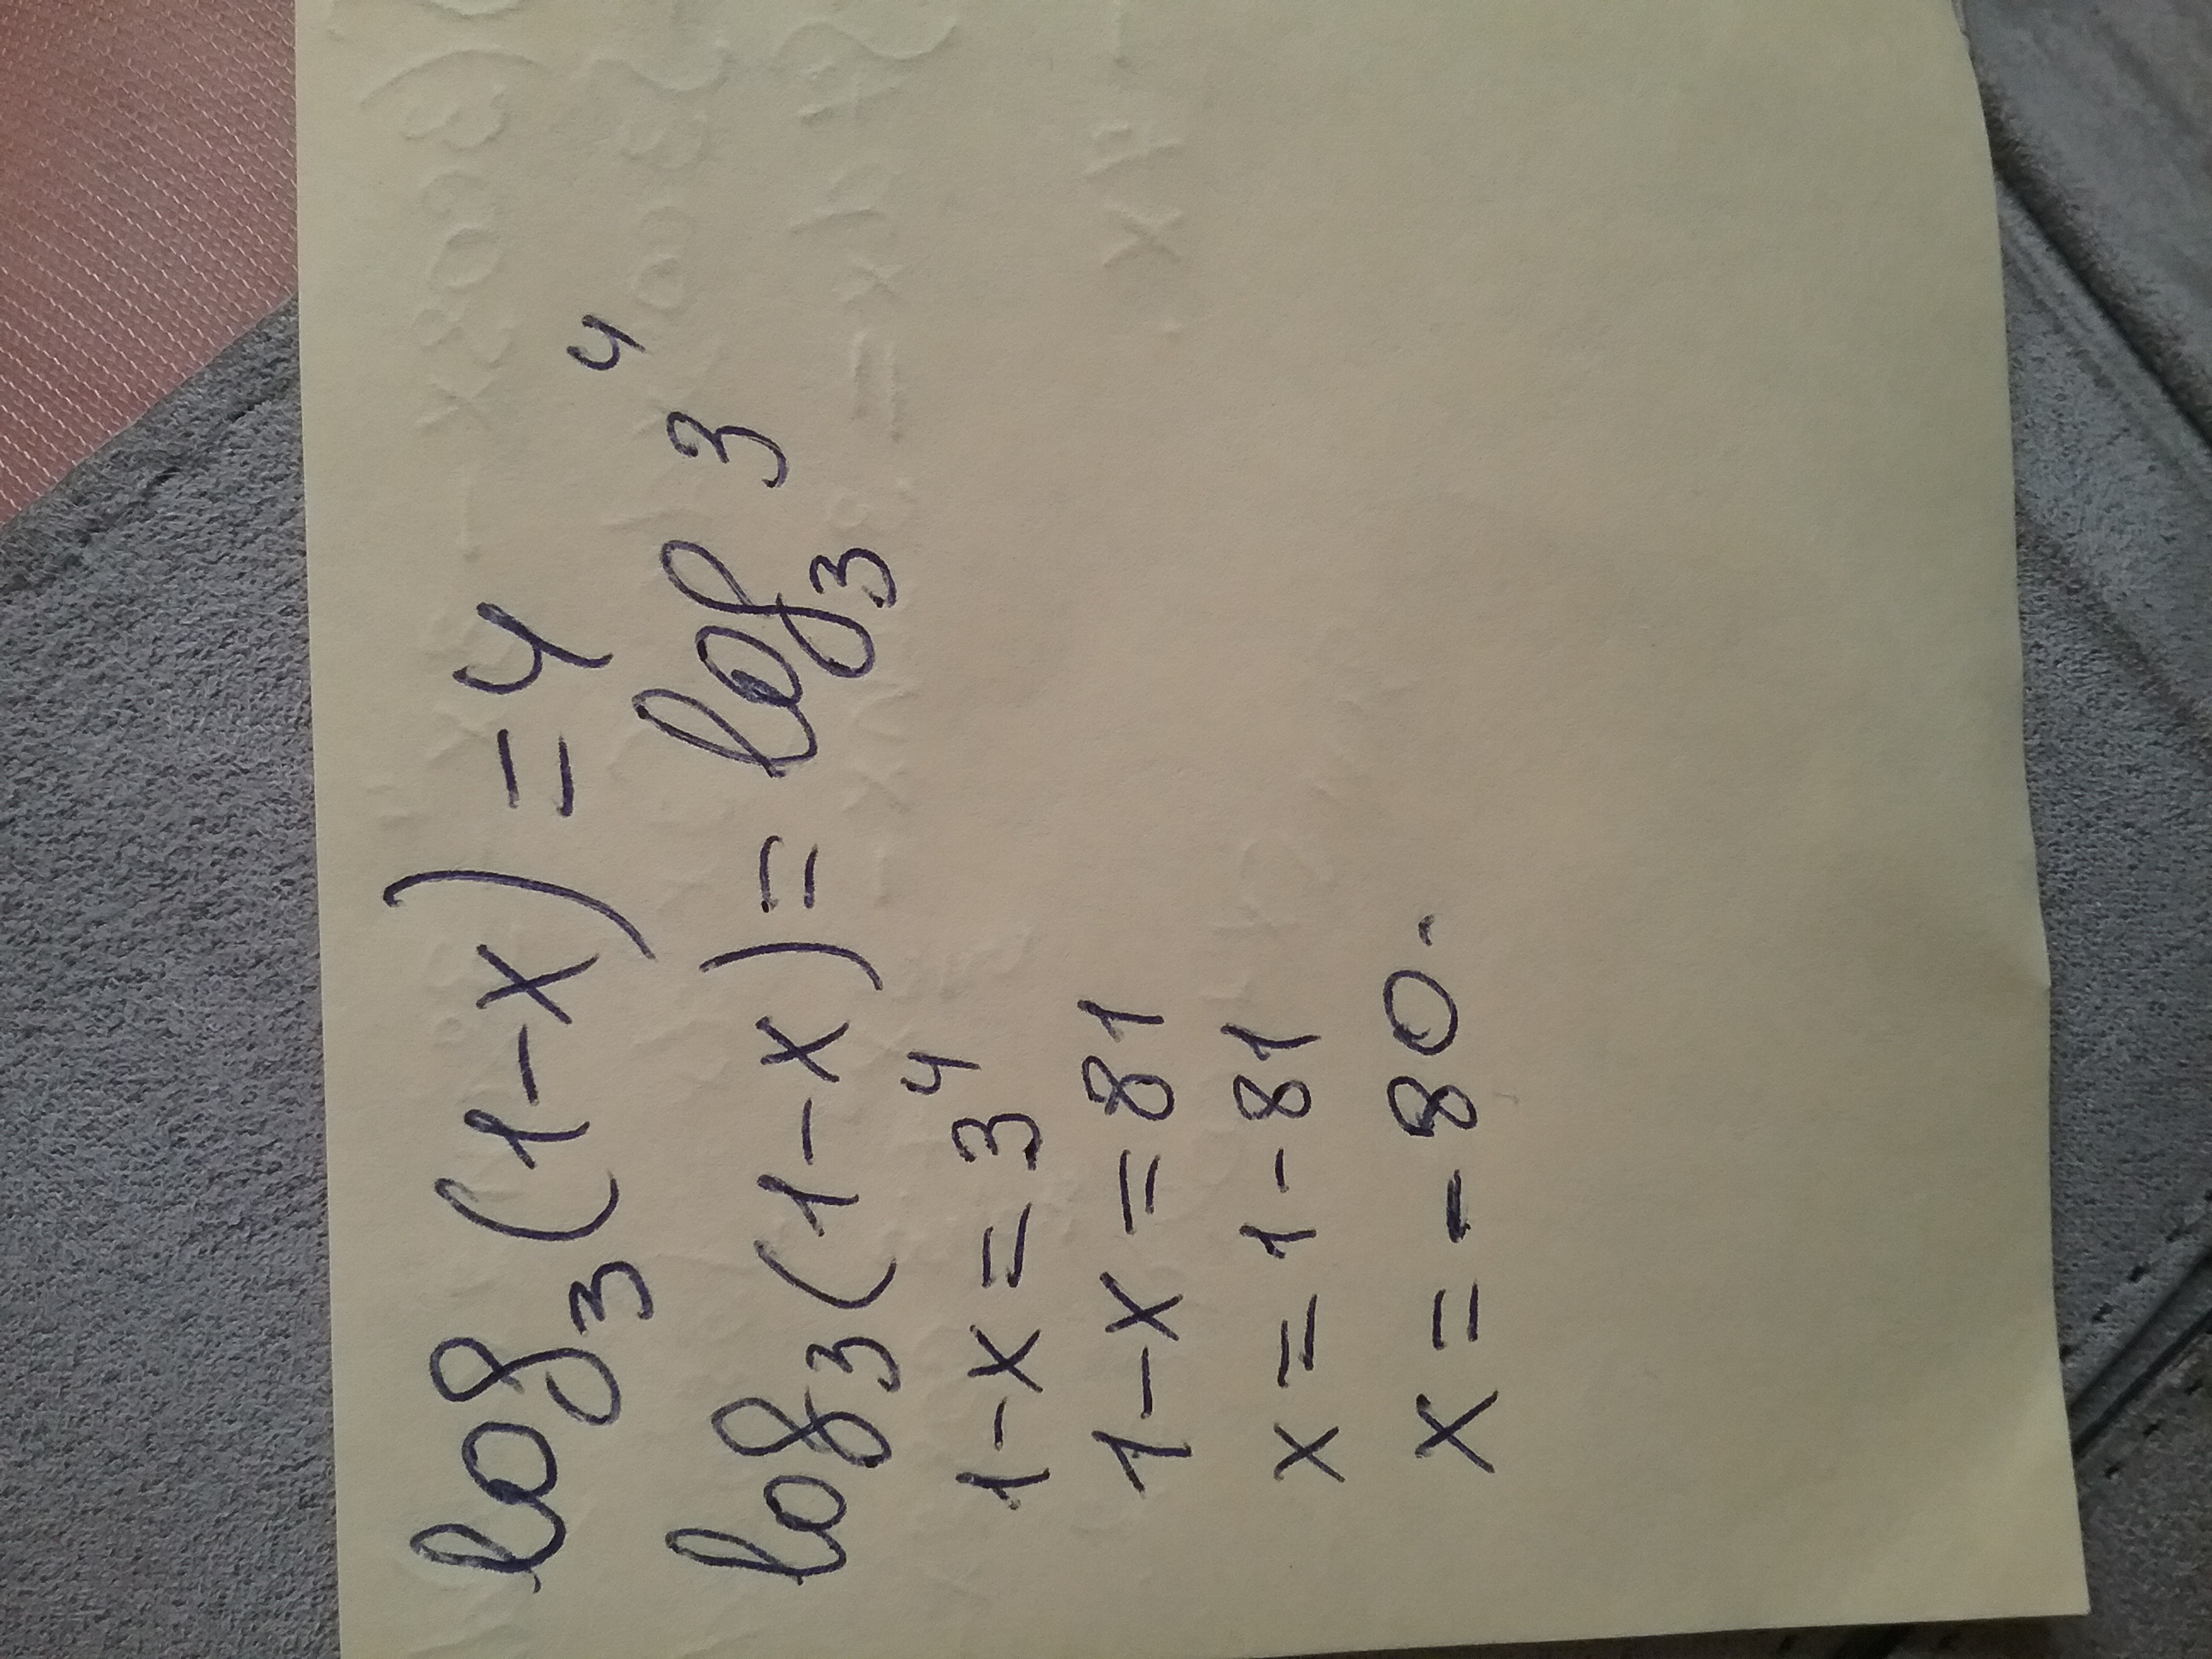 log₃(1-x)=4
log₃(1-x)=log₃3⁴
1-x=3⁴
1-x=81
x=1-81
x=-80.